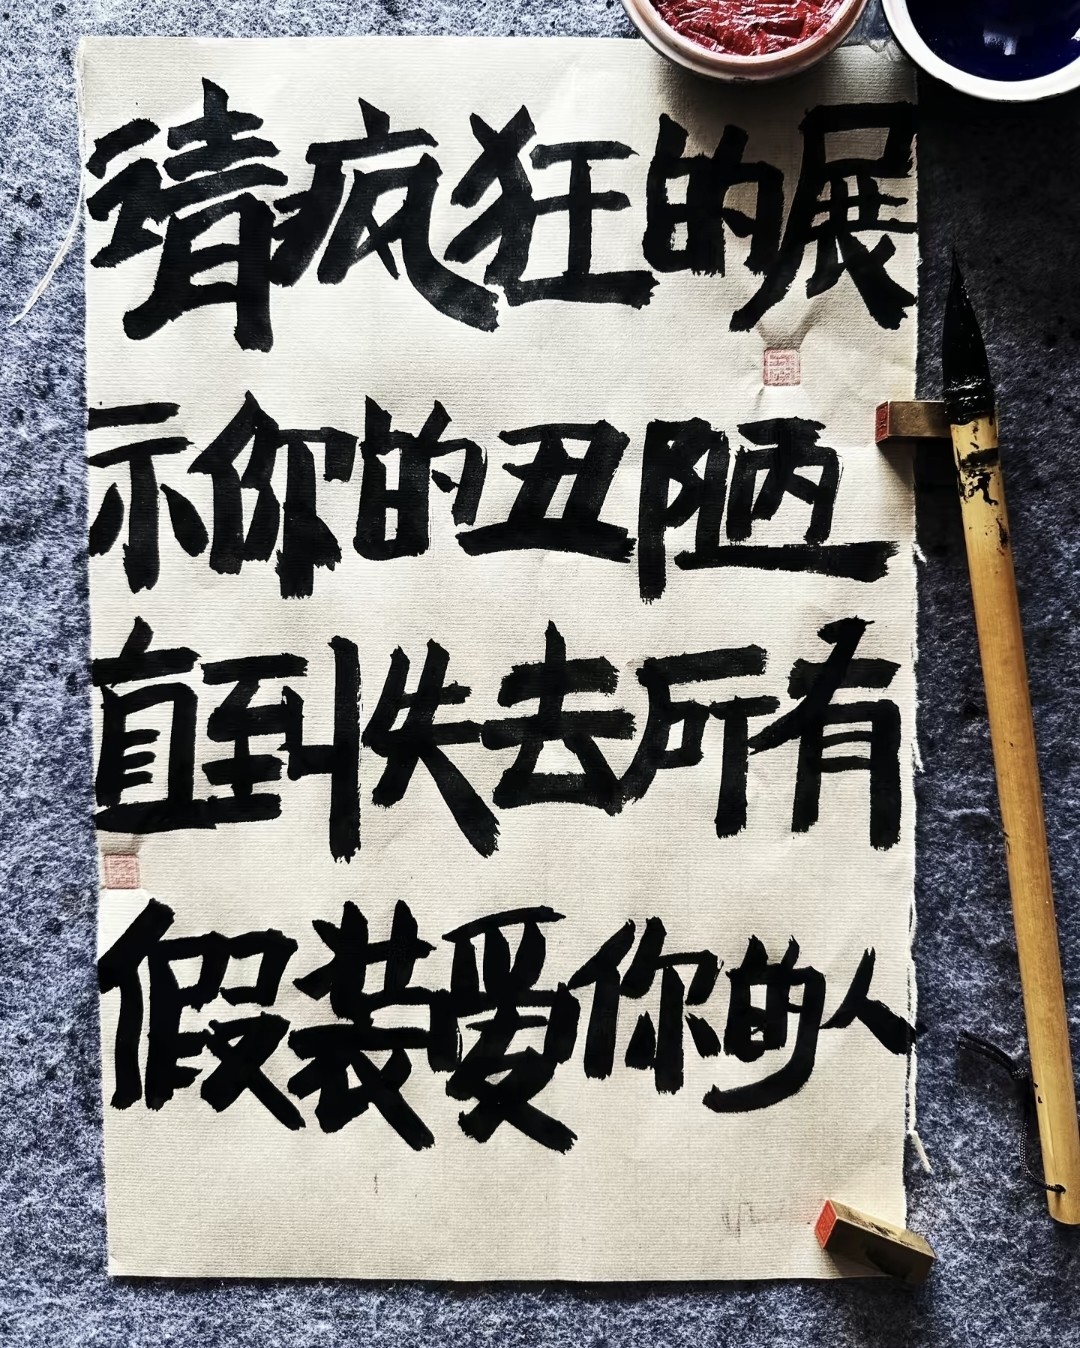 请疯狂的展
示你的丑陋
直到失去所有
假装爱你的人